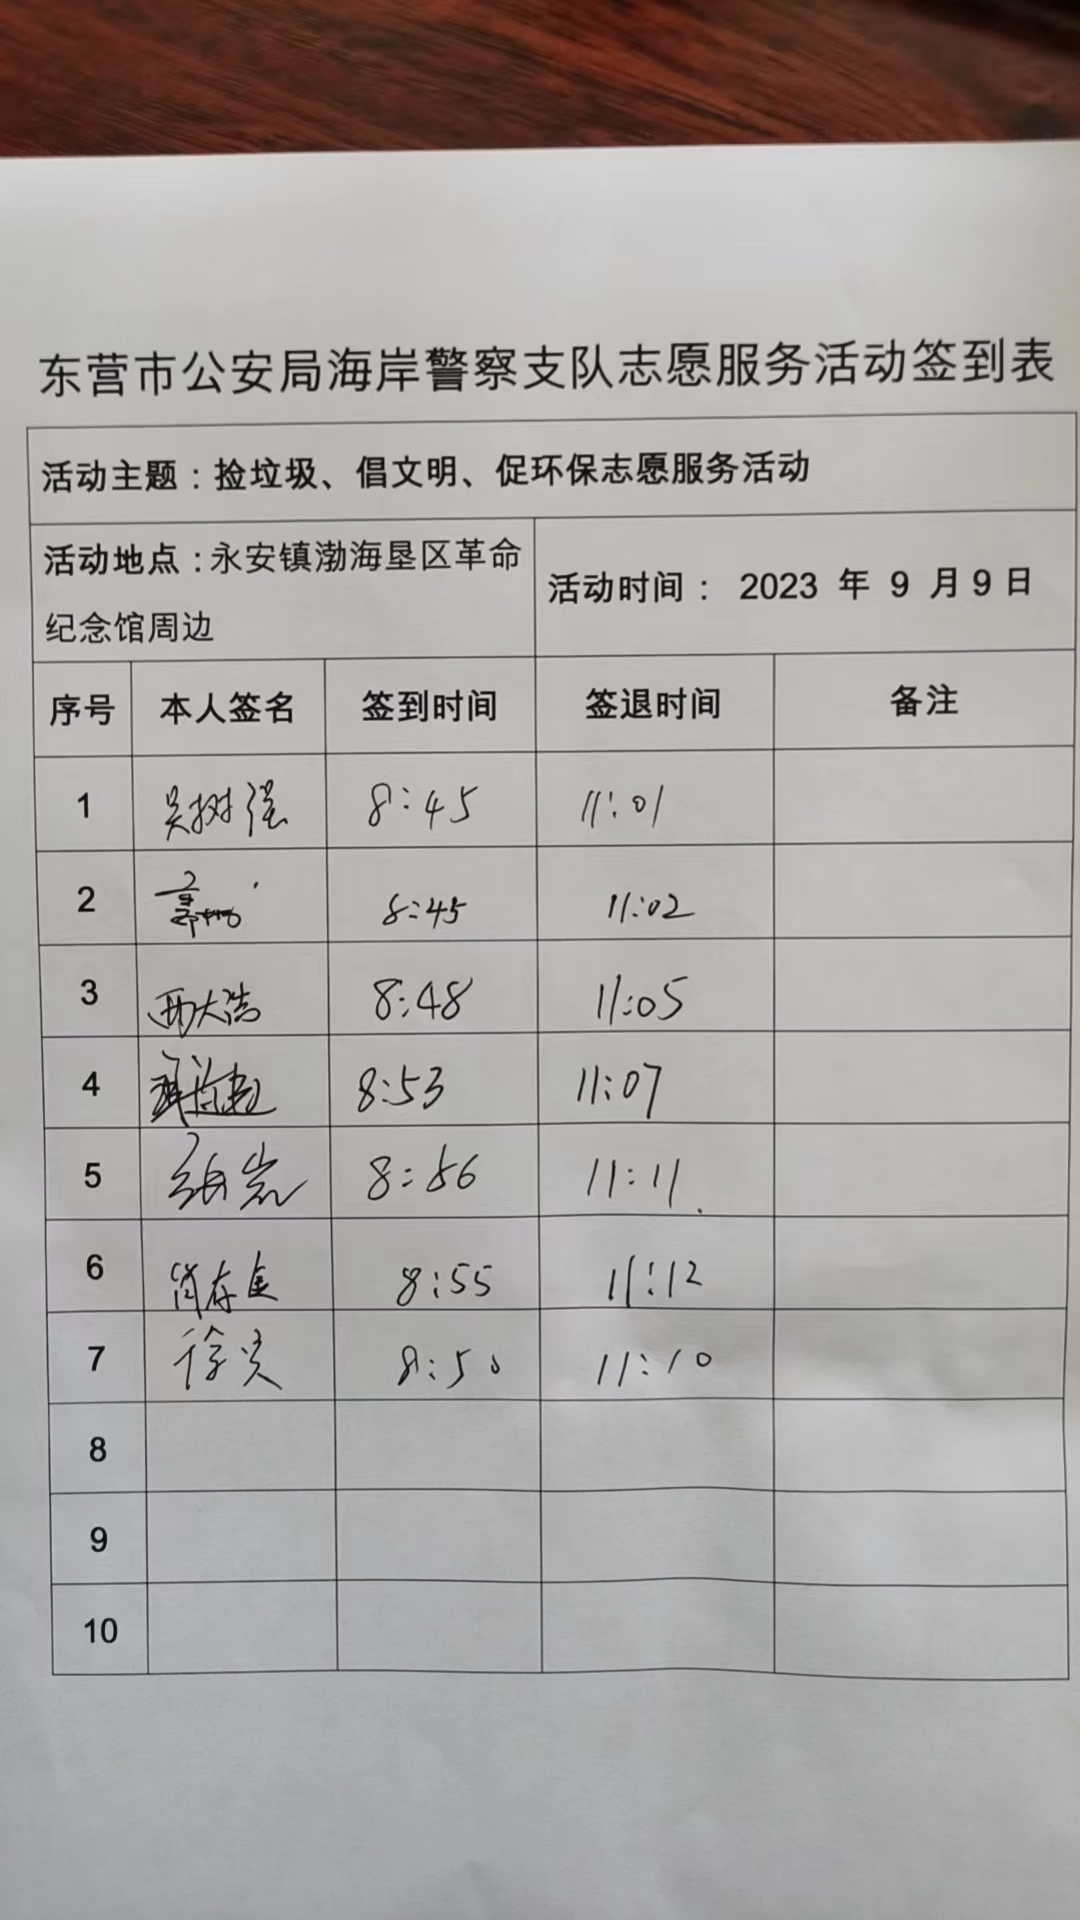 东营市公安局海岸警察支队志愿服务活动签到表
活动主题：捡垃圾、倡文明、促环保志愿服务活动
活动地点：永安镇渤海垦区革命
纪念馆周边
活动时间： 2023 年 9 月9日
序号 本人签名 签到时间 签退时间 备注
1 吴树强 8:45 11:01
2 8:45 11:02
3 8:48 11:05
4 8:53 11:07
5 8:56 11:11
6 8:55 11:12
7 8:50 11:10
8
9
10